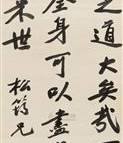 之道大矣哉
全身可以盡
末世
松筠兄